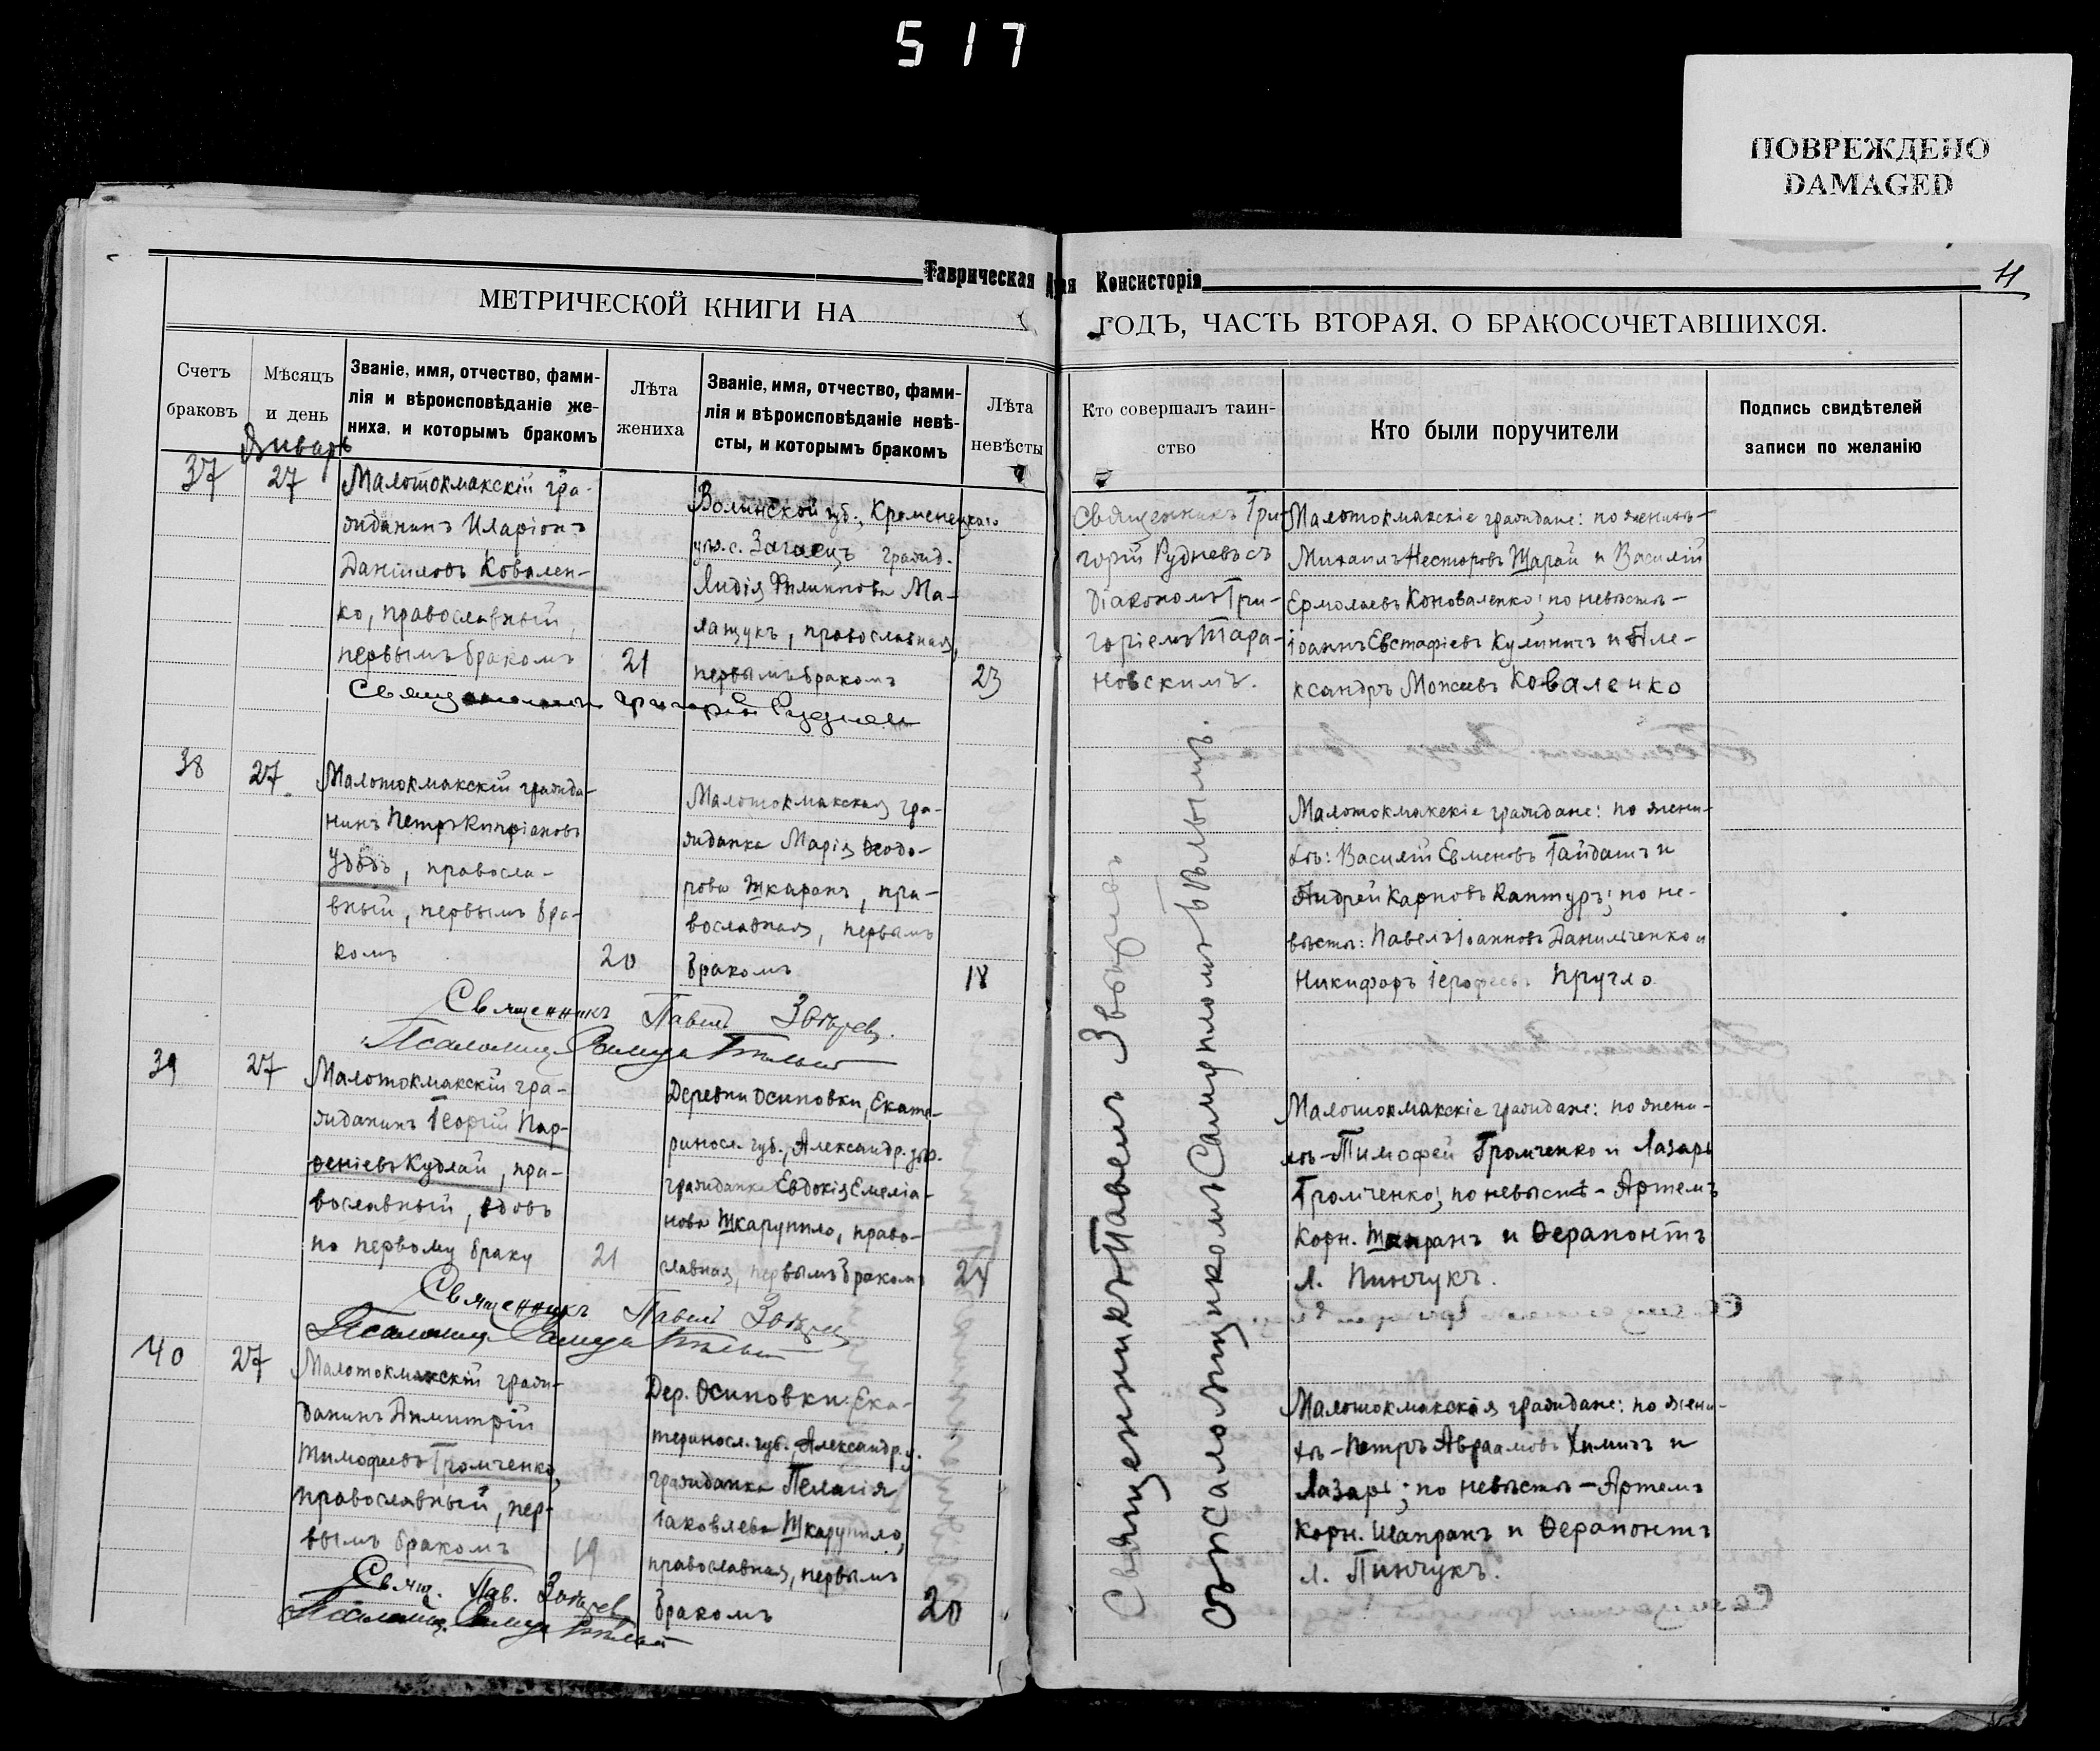 517
ПОВРЕЖДЕНО
DAMAGED
Таврическая Консисторія
11
МЕТРИЧЕСКОЙ КНИГИ НА
ГОДЪ, ЧАСТЬ ВТОРАЯ, О БРАКОСОЧЕТАВШИХСЯ.
Счетъ
браковъ
Мѣсяцъ
и день
Званіе, имя, отчество, фами-
лія и вѣроисповѣданіе же-
ниха, и которымъ бракомъ
Лѣта
жениха
Званіе, имя, отчество, фами-
лія и вѣроисповѣданіе невѣ-
сты, и которымъ бракомъ
Лѣта
невѣсты
Кто совершалъ таин-
ство
Кто были поручители
Подпись свидѣтелей
записи по желанію
Январь
37
27
Малотокмакскій гра-
жданинъ Иларіонъ
Даніиловъ Ковален-
ко, православный,
первымъ бракомъ
21
Волынской губ., Кременецкаго
у. с. Загаецъ гражд.
Лидія Филиппова Ма-
лащукъ, православная,
первымъ бракомъ
23
Священникъ Григорій Руднев
Священникъ Гри-
горій Рудневъ съ
діакономъ Гри-
горіемъ Тара-
новскимъ.
Малотокмакскіе граждане: по женихѣ-
Михаилъ Несторовъ Шарай и Василій
Ермолаевъ Коноваленко; по невѣстѣ-
Іоаннъ Евстафіевъ Кулиничъ и Але-
ксандръ Моисеевъ Коваленко
38
27
Малотокмакскій гражда-
нинъ Петръ Кипріановъ
Удодъ, правосла-
вный, первымъ бра-
комъ
20
Малотокмакская гра-
жданка Марія Ѳеодо-
рова Шкаранъ, пра-
вославная, первымъ
бракомъ
18
Священникъ Павелъ Звѣрев.
Псаломщ. Самуил Бѣлый
Малотокмакскіе граждане: по жени-
хѣ: Василій Евменовъ Гайдашъ и
Андрей Карповъ Кантуръ; по не-
вѣстѣ: Павелъ Іоанновъ Данильченко и
Никифоръ Іерофеевъ Пругло
39
27
Малотокмакскій гра-
жданинъ Георгій Пар-
ѳеніевъ Кудлай, пра-
вославный, вдовъ
по первому браку
21
Деревни Осиповки, Екате-
ринос. губ., Александр. у.
гражданка Евдокія Емеліа-
нова Шкарупило, право-
славная, первымъ бракомъ
24
Священникъ Павелъ Звѣрев
Псаломщ. Самуил Бѣлый
Малотокмакскіе граждане: по жени-
хѣ-Тимофей Громченко и Лазарь
Громченко; по невѣстѣ-Артемъ
Корн. Шапранъ и Ѳерапонтъ
Л. Пинчукъ.
40
27
Малотокмакскій граж-
данинъ Димитрій
Тимофеевъ Громченко,
православный, пер-
вымъ бракомъ
19
Дер. Осиповки Ека-
теринос. губ. Александр. у.
гражданка Пелагія
Іаковлева Шкарупило,
православная, первымъ
бракомъ
20
Свящ. Пав. Звѣрев
Псаломщ. Самуил Бѣлый
Малотокмакскія граждане: по жени-
хѣ-Петръ Авраамовъ Химичъ и
Лазарь; по невѣстѣ-Артемъ
Корн. Шапранъ и Ѳерапонтъ
Л. Пинчукъ.
Священникъ Павелъ Звѣревъ
съ псаломщикомъ Самуиломъ Бѣлымъ.